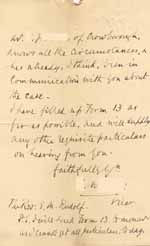 Mr. P of Crowborough,
knows all the circumstances, &
has already, I think, been in
communication with you about
the case.
I have filled up Form 13 as
far as possible, and will supply
any other requisite particulars
on hearing from you.
faithfully Yrs
Vicar
E. M. Rudolf.
P.S. I will send Form 13 tomorrow
all particulars, today